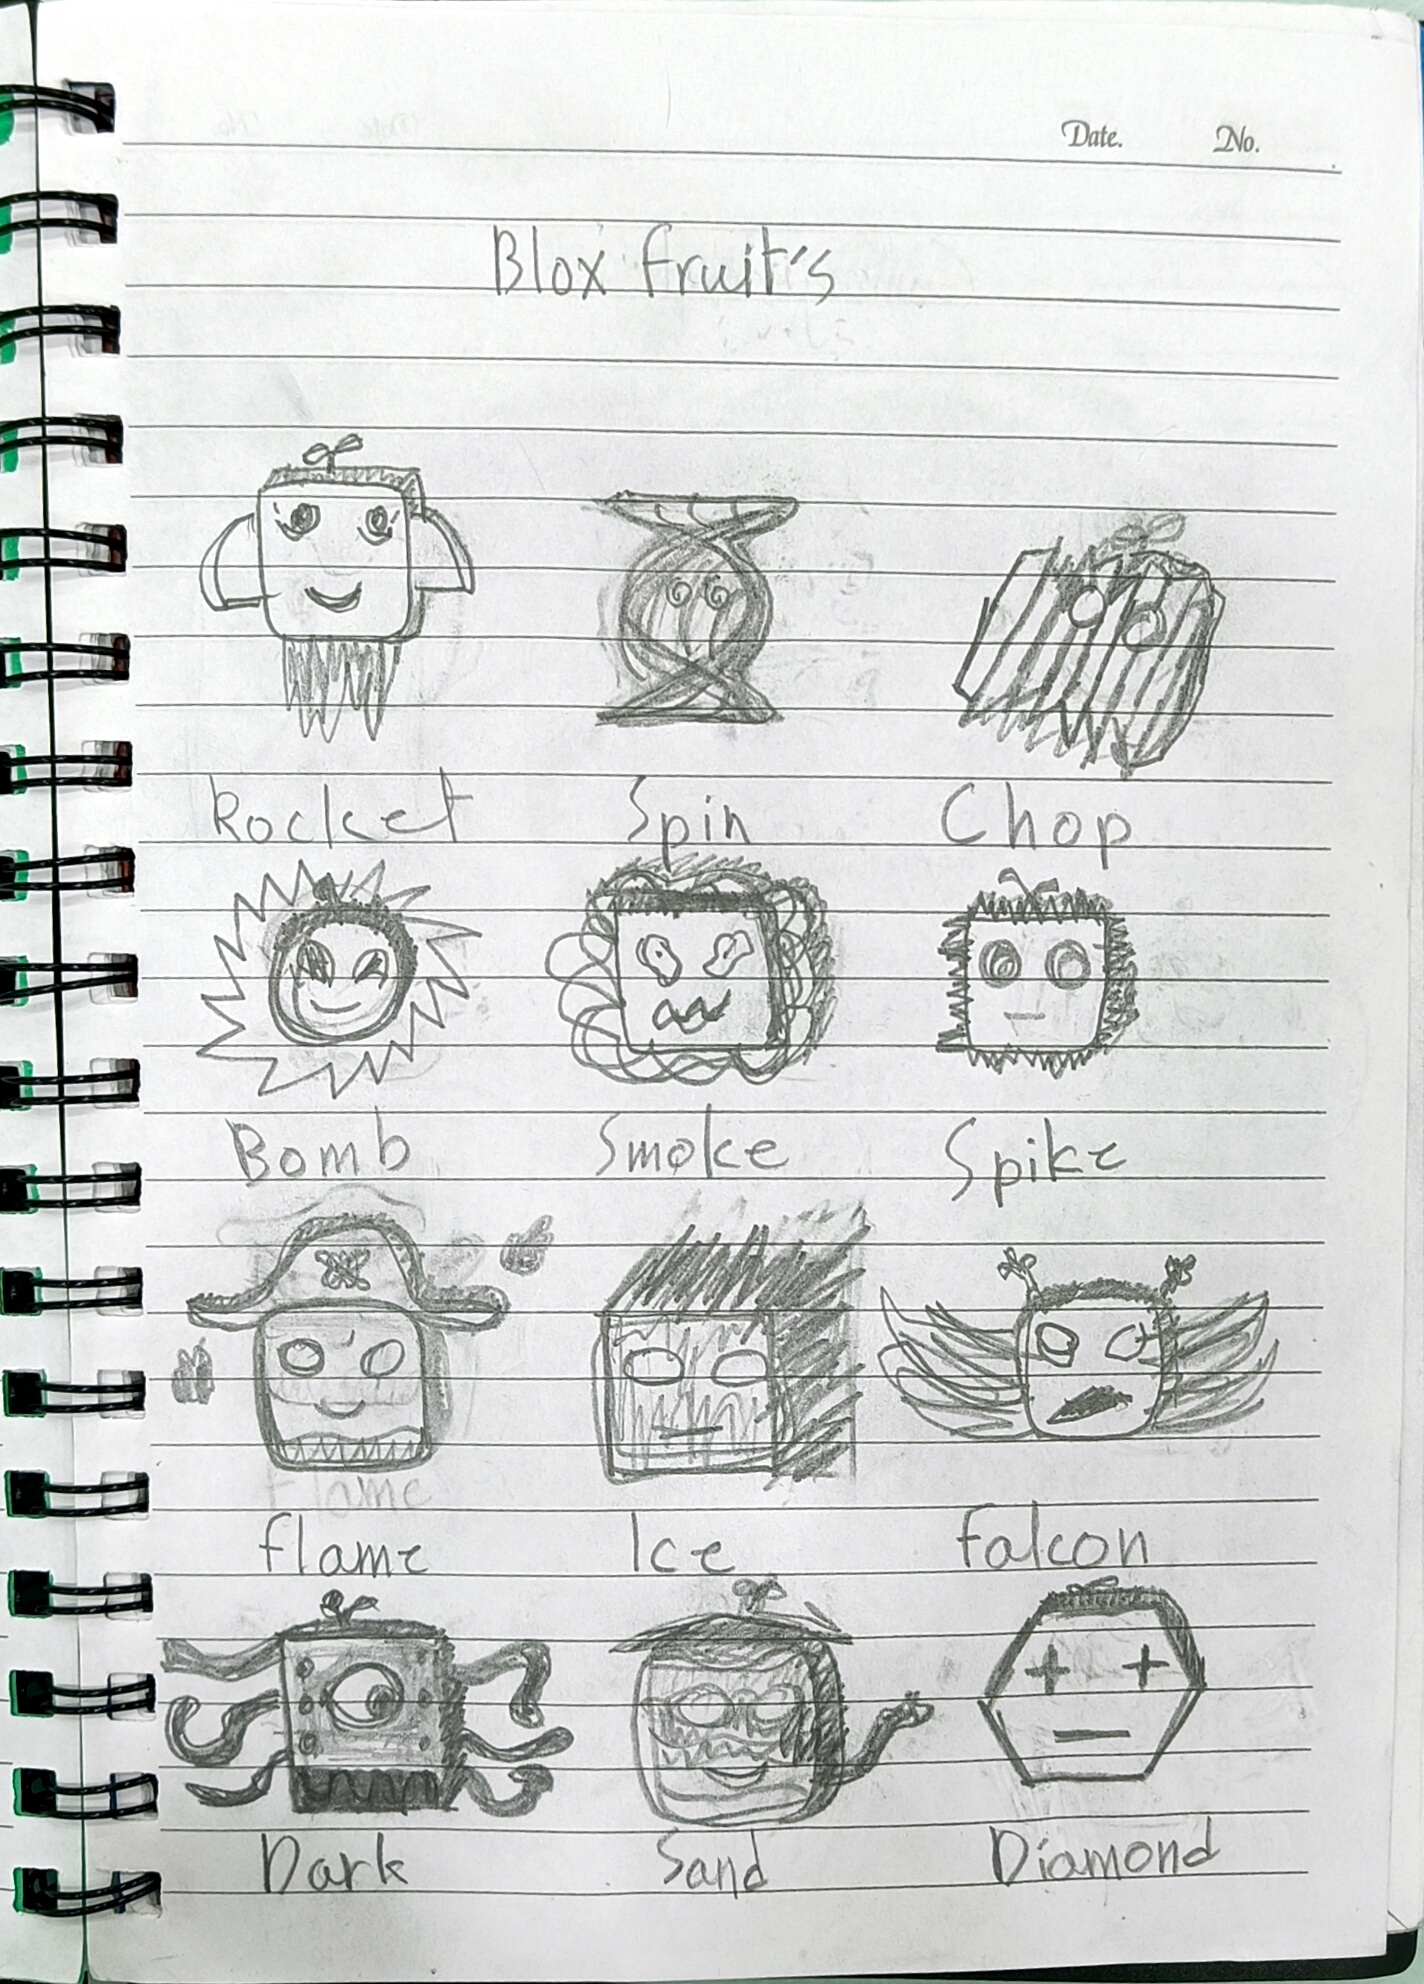 Date. No.
Blox Fruit's
Rocket Spin Chop
Bomb Smoke Spike
Flame
flame Ice falcon
Dark Sand Diamond